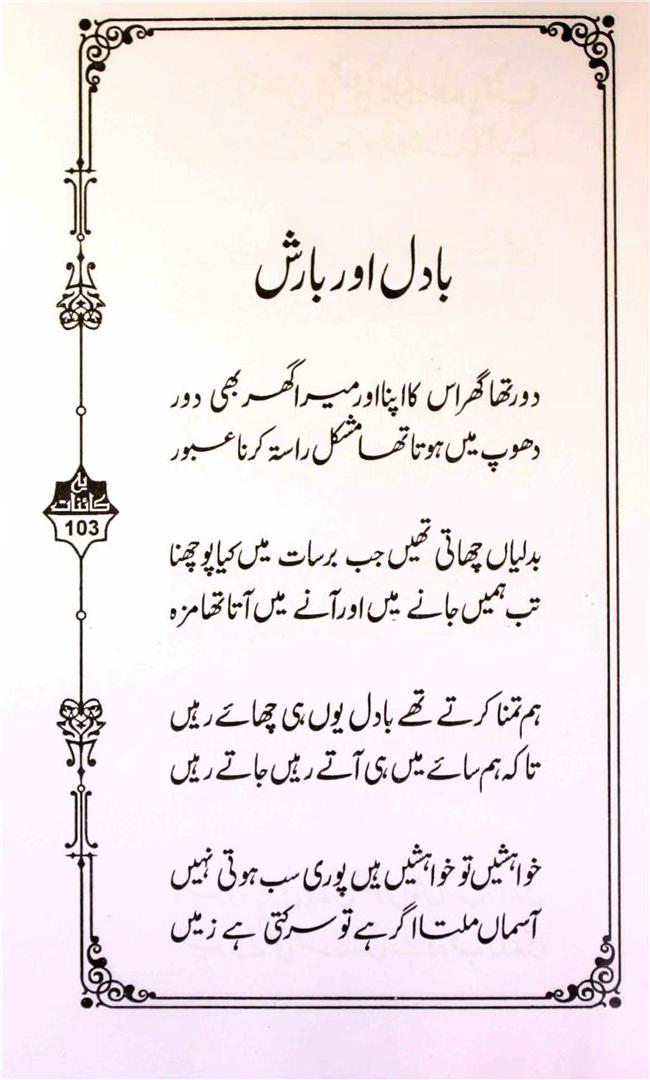 بادل اور بارش
دور تھا گھر اس کا اپنا اور میرا گھر بھی دور
دھوپ میں ہوتا تھا مشکل راستہ کرنا عبور
بدلیاں چھاتی تھیں جب برسات میں کیا پوچھنا
تب ہمیں جانے میں اور آنے میں آتا تھا مزہ
ہم تمنا کرتے تھے بادل یوں ہی چھائے رہیں
تاکہ ہم سائے میں ہی آتے رہیں جاتے رہیں
خواہشیں تو خواہشیں ہیں پوری سب ہوتی نہیں
آسماں ملتا اگر ہے تو سرکتی ہے زمیں
یہ
کائنات
103